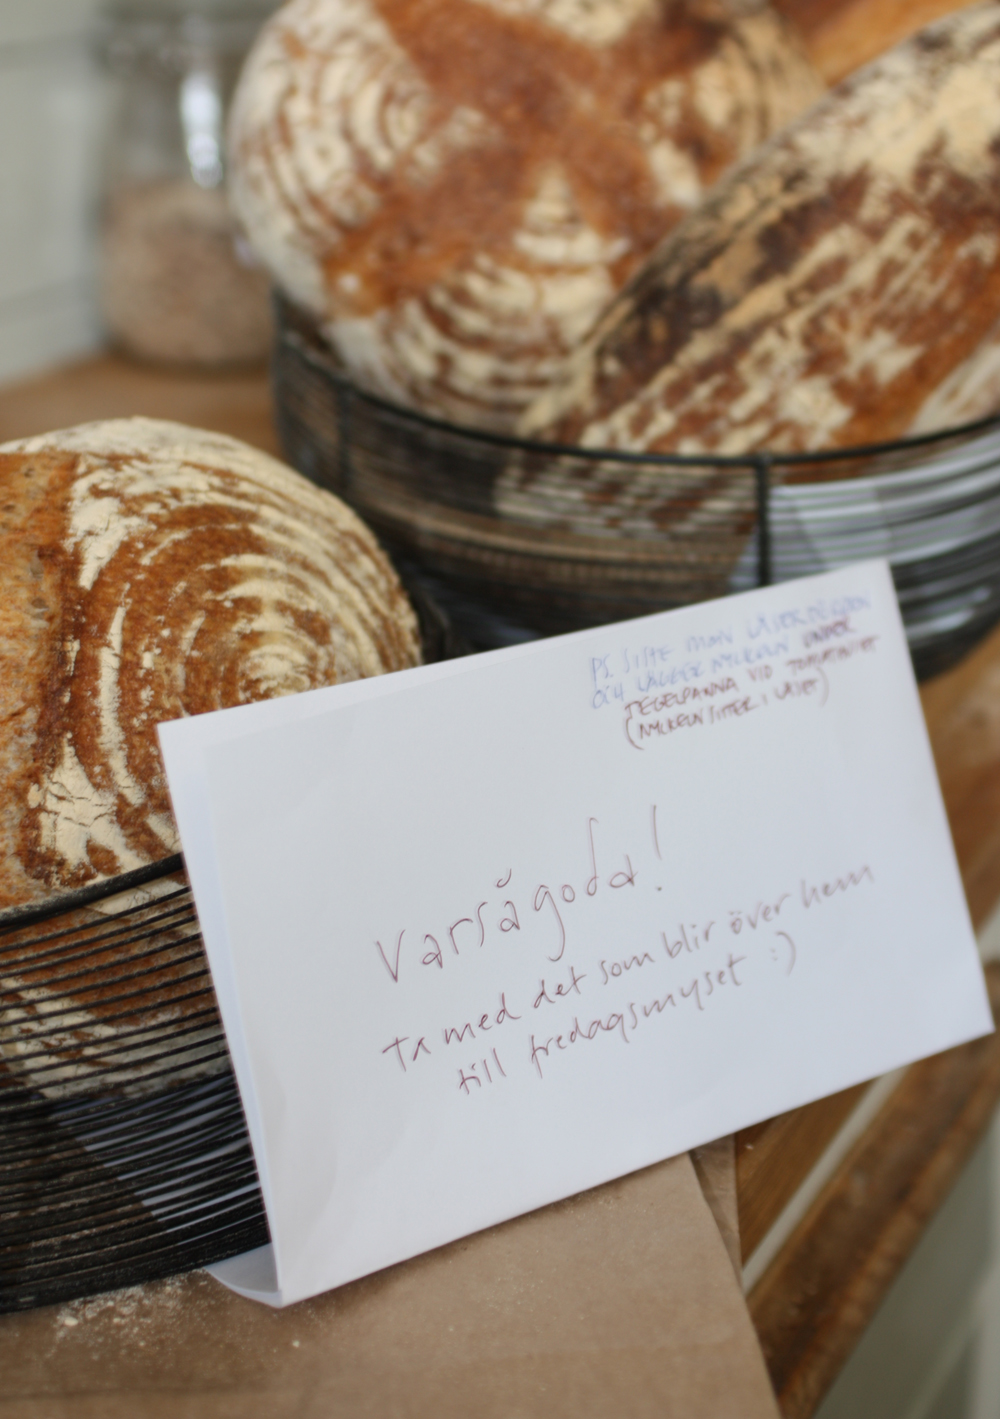 PS. SISTE MAN LÅSER DÖRREN
OCH LÄGGER NYCKELN UNDER
TEGELPANNA VID TOMATHUSET
(NYCKELN SITTER I LÅSET)
Varsågoda!
ta med det som blir över hem
till fredagsmyset :)